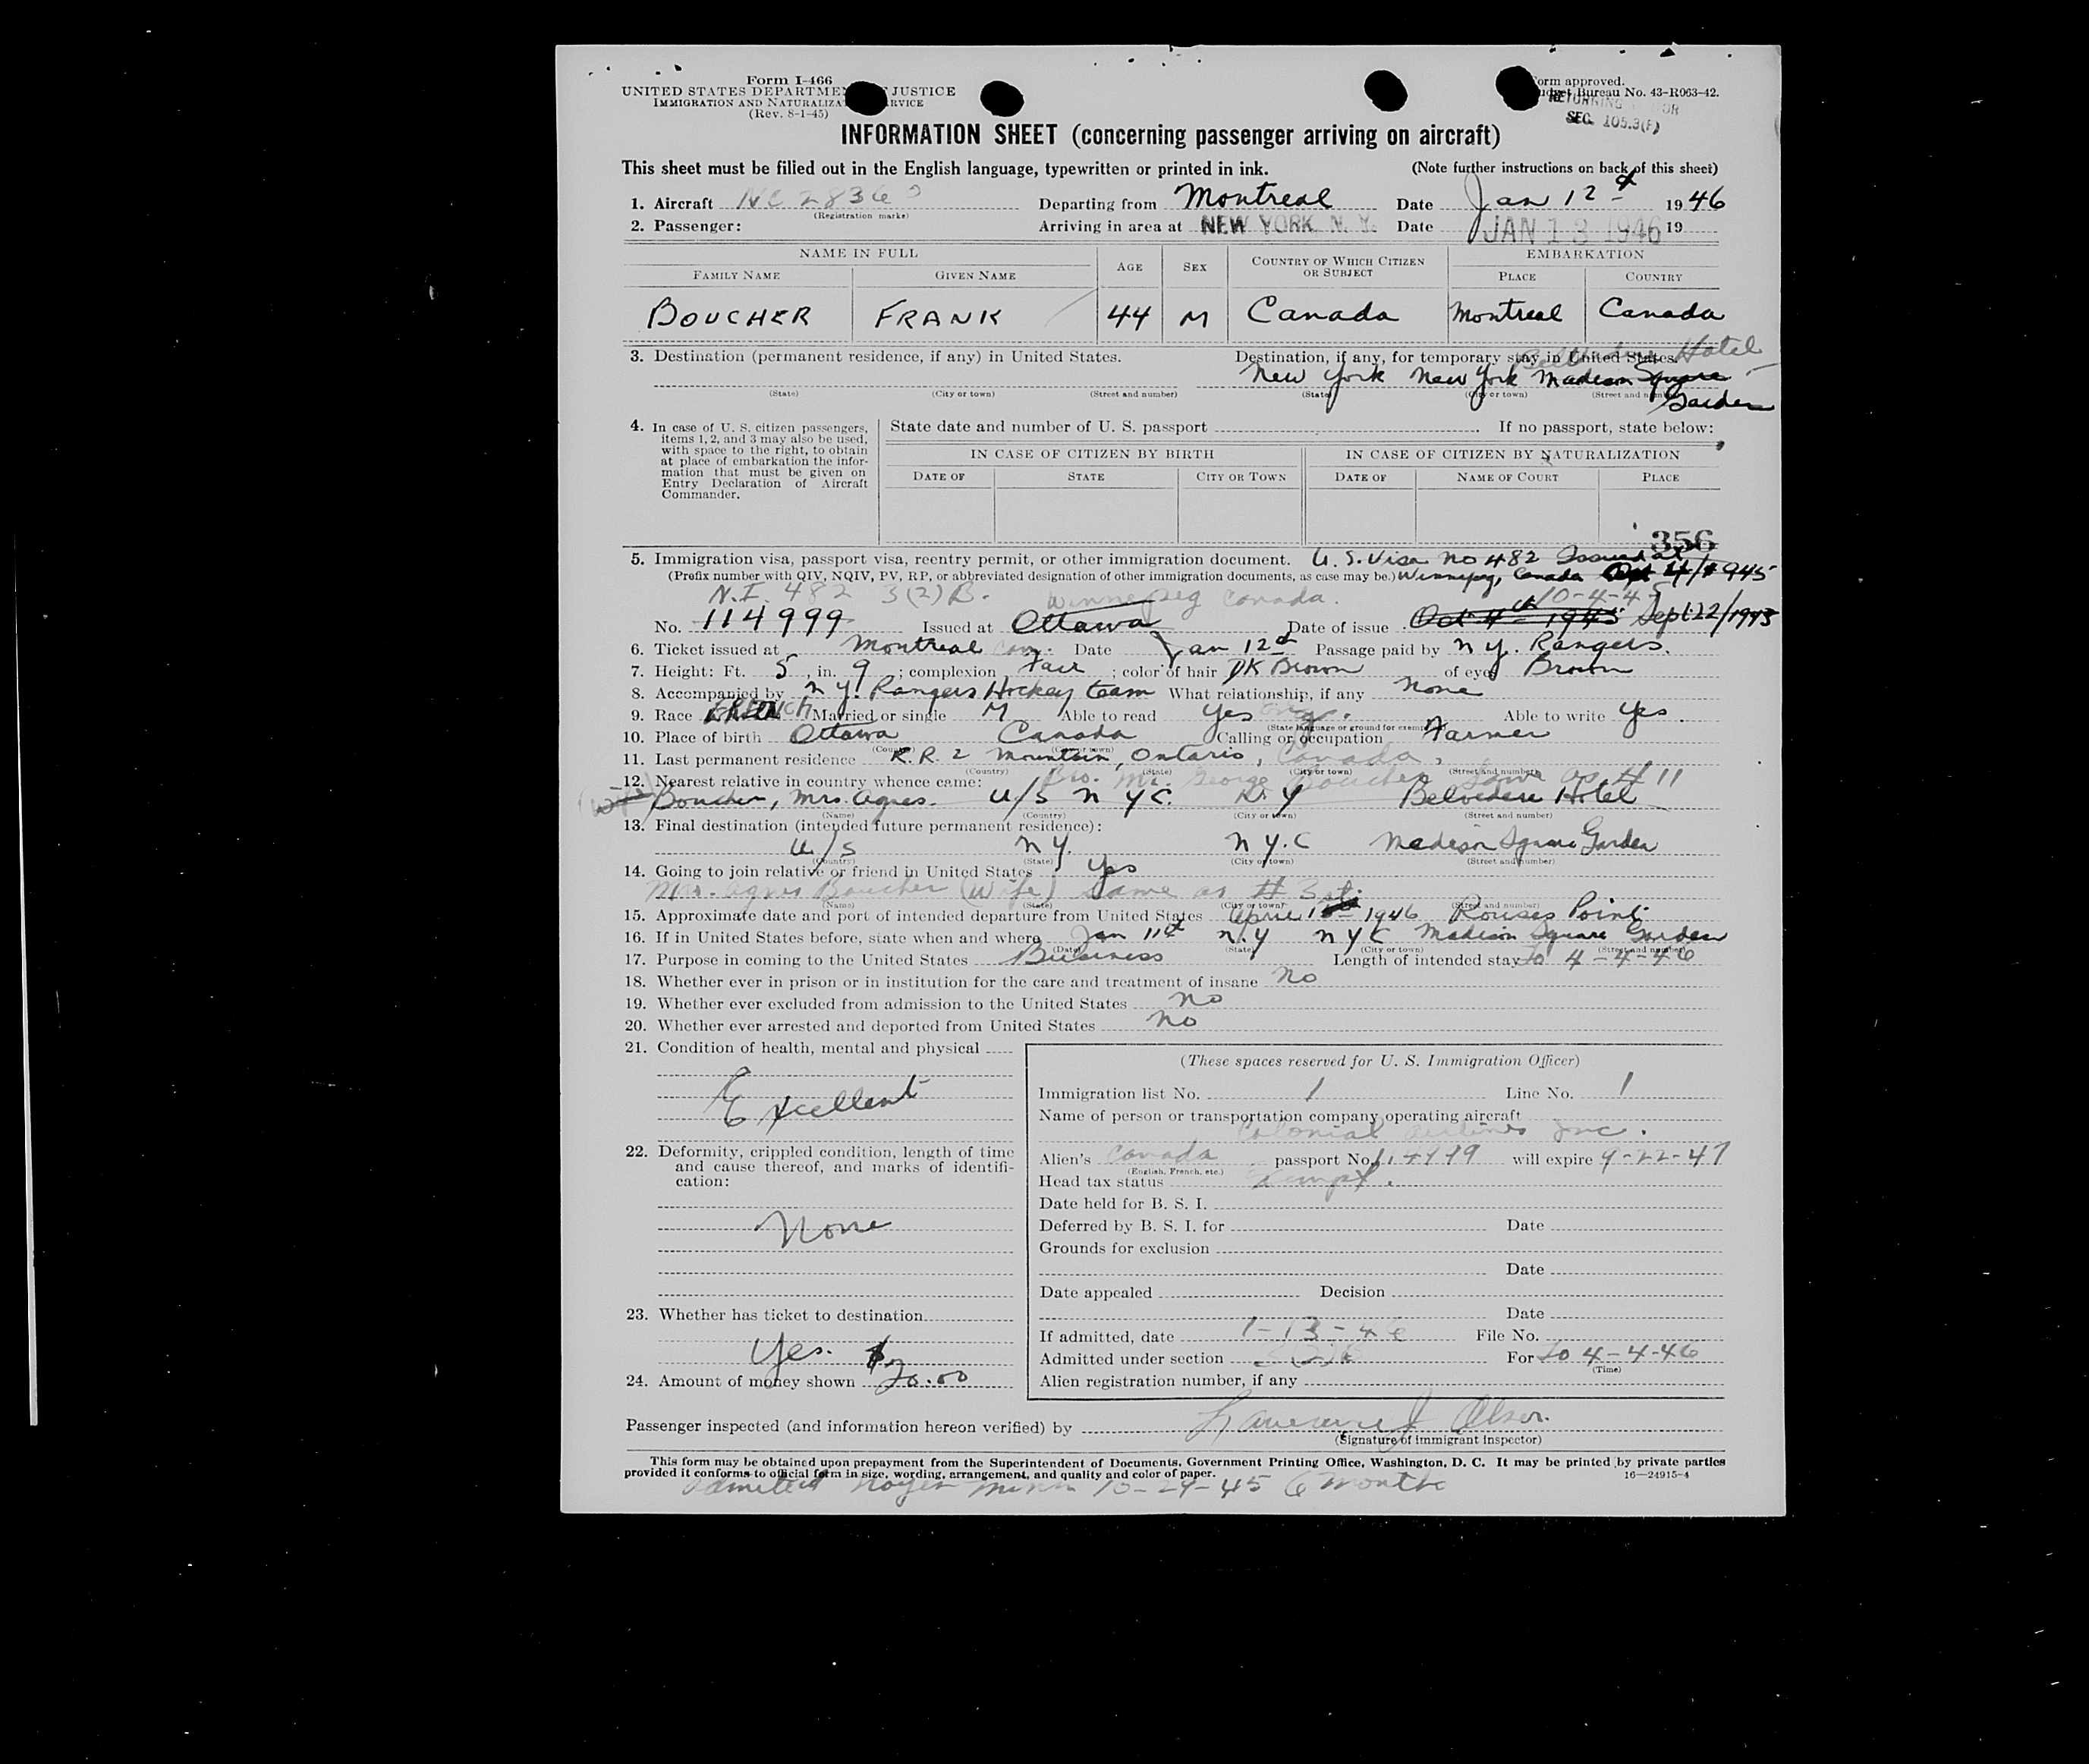 Form I-466
UNITED STATES DEPARTMENT JUSTICE
IMMIGRATION AND NATURALIZATION SERVICE
(Rev. 8-1-45)
Form approved.
Budget Bureau No. 43-R063-42.
RETURNING
SEC. 105.3(F)
INFORMATION SHEET (concerning passenger arriving on aircraft)
This sheet must be filled out in the English language, typewritten or printed in ink. (Note further instructions on back of this sheet)
1. Aircraft NC 2836 (Registration marks) Departing from Montreal Date Jan 12 1946
2. Passenger: Arriving in area at NEW YORK, N. Y. Date JAN 13 1946 19
NAME IN FULL AGE SEX COUNTRY OF WHICH CITIZEN OR SUBJECT EMBARKATION
FAMILY NAME GIVEN NAME PLACE COUNTRY
BOUCHER FRANK 44 M Canada Montreal Canada
3. Destination (permanent residence, if any) in United States. Destination, if any, for temporary stay in United States. Hotel
New York New York Madison Square Garden
(State) (City or town) (Street and number) (State) (City or town) (Street and number)
4. In case of U. S. citizen passengers, items 1, 2, and 3 may also be used, with space to the right, to obtain at place of embarkation the information that must be given on Entry Declaration of Aircraft Commander.
State date and number of U. S. passport If no passport, state below:
IN CASE OF CITIZEN BY BIRTH IN CASE OF CITIZEN BY NATURALIZATION
DATE OF STATE CITY OR TOWN DATE OF NAME OF COURT PLACE
356
5. Immigration visa, passport visa, reentry permit, or other immigration document. U. S. Visa No 482 Issued at
(Prefix number with QIV, NQIV, PV, RP, or abbreviated designation of other immigration documents, as case may be.) Winnipeg, Canada Oct 4/1945
N.I. 482 3(2)B. Winnipeg Canada. 10-4-45
No. 114999 Issued at Ottawa Date of issue Oct 4th 1945 Sept 22/1943
6. Ticket issued at Montreal Can. Date Jan 12th Passage paid by N Y. Rangers.
7. Height: Ft. 5, in. 9; complexion Fair; color of hair DK Brown of eyes Brown
8. Accompanied by N Y. Rangers Hockey team What relationship, if any None
9. Race FRENCH Married or single M Able to read Yes Eng. Able to write Yes.
(State language or ground for exemption)
10. Place of birth Ottawa Canada Calling or occupation Farmer
(Country) (City or town)
11. Last permanent residence R.R. 2 Mountain, Ontario, Canada,
(Country) (State) (City or town) (Street and number)
12. Nearest relative in country whence came: Bro. Mr. George Boucher Same as #11
(Wife) Boucher, Mrs. Agnes. U/S N Y C. N. Y Belvedere Hotel
(Name) (Country) (City or town) (Street and number)
13. Final destination (intended future permanent residence):
U/S N Y. N Y. C Madison Square Garden
(Country) (State) (City or town) (Street and number)
14. Going to join relative or friend in United States Yes
Mrs. Agnes Boucher (Wife) Same as # 3
(Name) (State) (City or town) (Street and number)
15. Approximate date and port of intended departure from United States April 1946 Rouses Point
16. If in United States before, state when and where Jan 11th N.Y N Y C Madison Square Garden
(Date) (State) (City or town) (Street and number)
17. Purpose in coming to the United States Business Length of intended stay To 4-4-46
18. Whether ever in prison or in institution for the care and treatment of insane No
19. Whether ever excluded from admission to the United States No
20. Whether ever arrested and deported from United States No
21. Condition of health, mental and physical
Excellent
22. Deformity, crippled condition, length of time and cause thereof, and marks of identification:
None
23. Whether has ticket to destination
Yes.
24. Amount of money shown $20.00
(These spaces reserved for U. S. Immigration Officer)
Immigration list No. 1 Line No. 1
Name of person or transportation company operating aircraft
Colonial Airlines Inc.
Alien's Canada passport No. 114999 will expire 9-22-47
(English, French, etc.)
Head tax status Exempt.
Date held for B. S. I.
Deferred by B. S. I. for Date
Grounds for exclusion
Date
Date appealed Decision
Date
If admitted, date 1-13-46 File No.
Admitted under section 3(2)B For To 4-4-46
(Time)
Alien registration number, if any
Passenger inspected (and information hereon verified) by Lawrence J Olsen.
(Signature of immigrant inspector)
This form may be obtained upon prepayment from the Superintendent of Documents, Government Printing Office, Washington, D. C. It may be printed by private parties
provided it conforms to official form in size, wording, arrangement, and quality and color of paper. 16—24915-4
Admitted Noyes Minn 10-29-45 6 Months